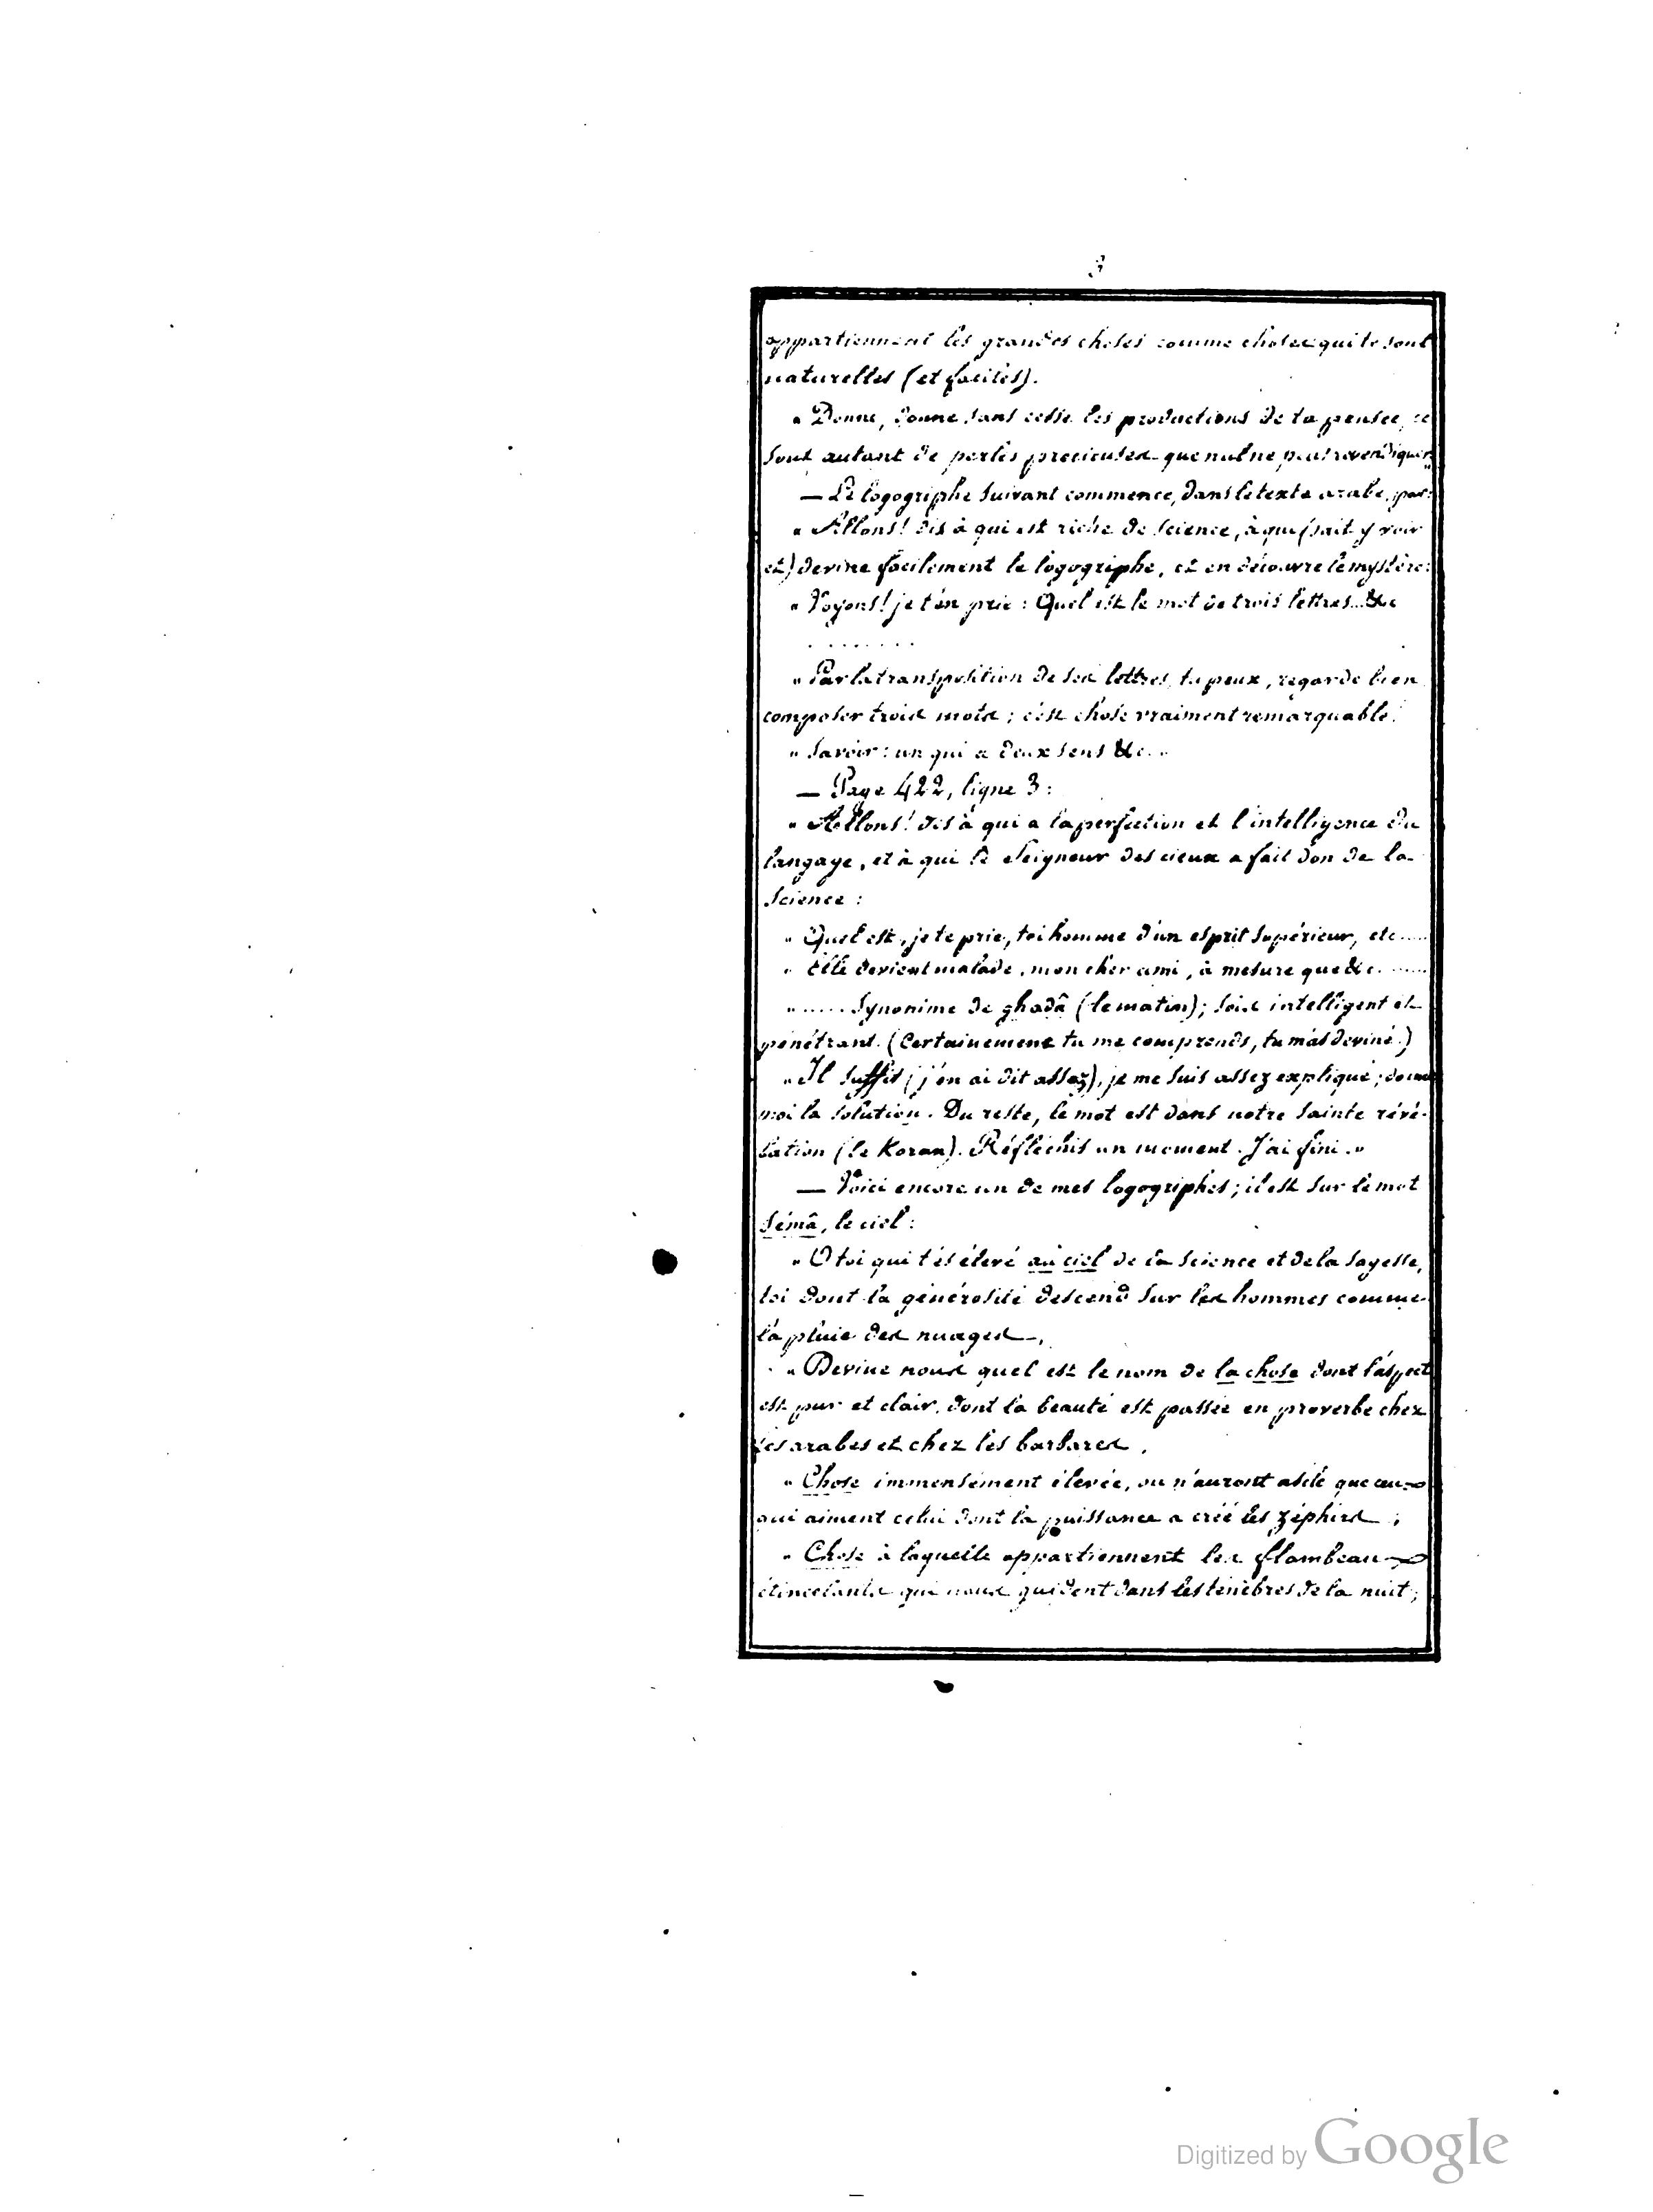 3
appartiennent les grandes choses comme choses qui te sont
naturelles (et faciles).
" Donne, donne sans cesse les productions de ta pensée, ce
sont autant de perles précieuses que nul ne peut revendiquer."
— Le logogriphe suivant commence, dans le texte arabe, par:
" Allons! dis à qui est riche de science, à qui (sait y voir
et) devine facilement le logogriphe, et en découvre le mystère:
" Voyons! je t'en prie : Quel est le mot de trois lettres...&c
........
" Par la transposition de ses lettres, tu peux, regarde bien
composer trois mots ; c'est chose vraiment remarquable.
" Savoir : un qui a deux sens &c. "
— Page 422, ligne 3 :
" Allons! dis à qui a la perfection et l'intelligence du
langage, et à qui le Seigneur des cieux a fait don de la
science :
" Quel est, je te prie, toi homme d'un esprit supérieur, etc.....
" Elle devient malade, mon cher ami, à mesure que &c.......
"..... Synonime de ghadâ (le matin); sois intelligent et
pénétrant. (Certainement tu me comprends, tu m'as deviné.)
" Il suffit (j'en ai dit assez), je me suis assez expliqué ; donne
moi la solution. Du reste, le mot est dans notre sainte révé-
lation (le Koran). Réfléchis un moment. J'ai fini. "
— Voici encore un de mes logogriphes ; il est sur le mot
sémâ, le ciel :
" O toi qui t'es élevé au ciel de la science et de la sagesse,
toi dont la générosité descend sur les hommes comme
la pluie des nuages,
" Devine nous quel est le nom de la chose dont l'aspect
est pur et clair, dont la beauté est passée en proverbe chez
les arabes et chez les barbares.
" Chose immensément élevée, ou n'auront asile que ceux
qui aiment celui dont la puissance a créé les zéphirs ;
" Chose à laquelle appartiennent les flambeaux
étincelants qui nous guident dans les ténèbres de la nuit ;
Digitized by Google